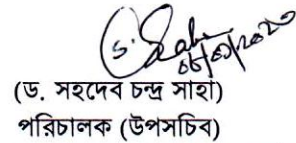 (ড. সহদেব চন্দ্র সাহা)
পরিচালক (উপসচিব)